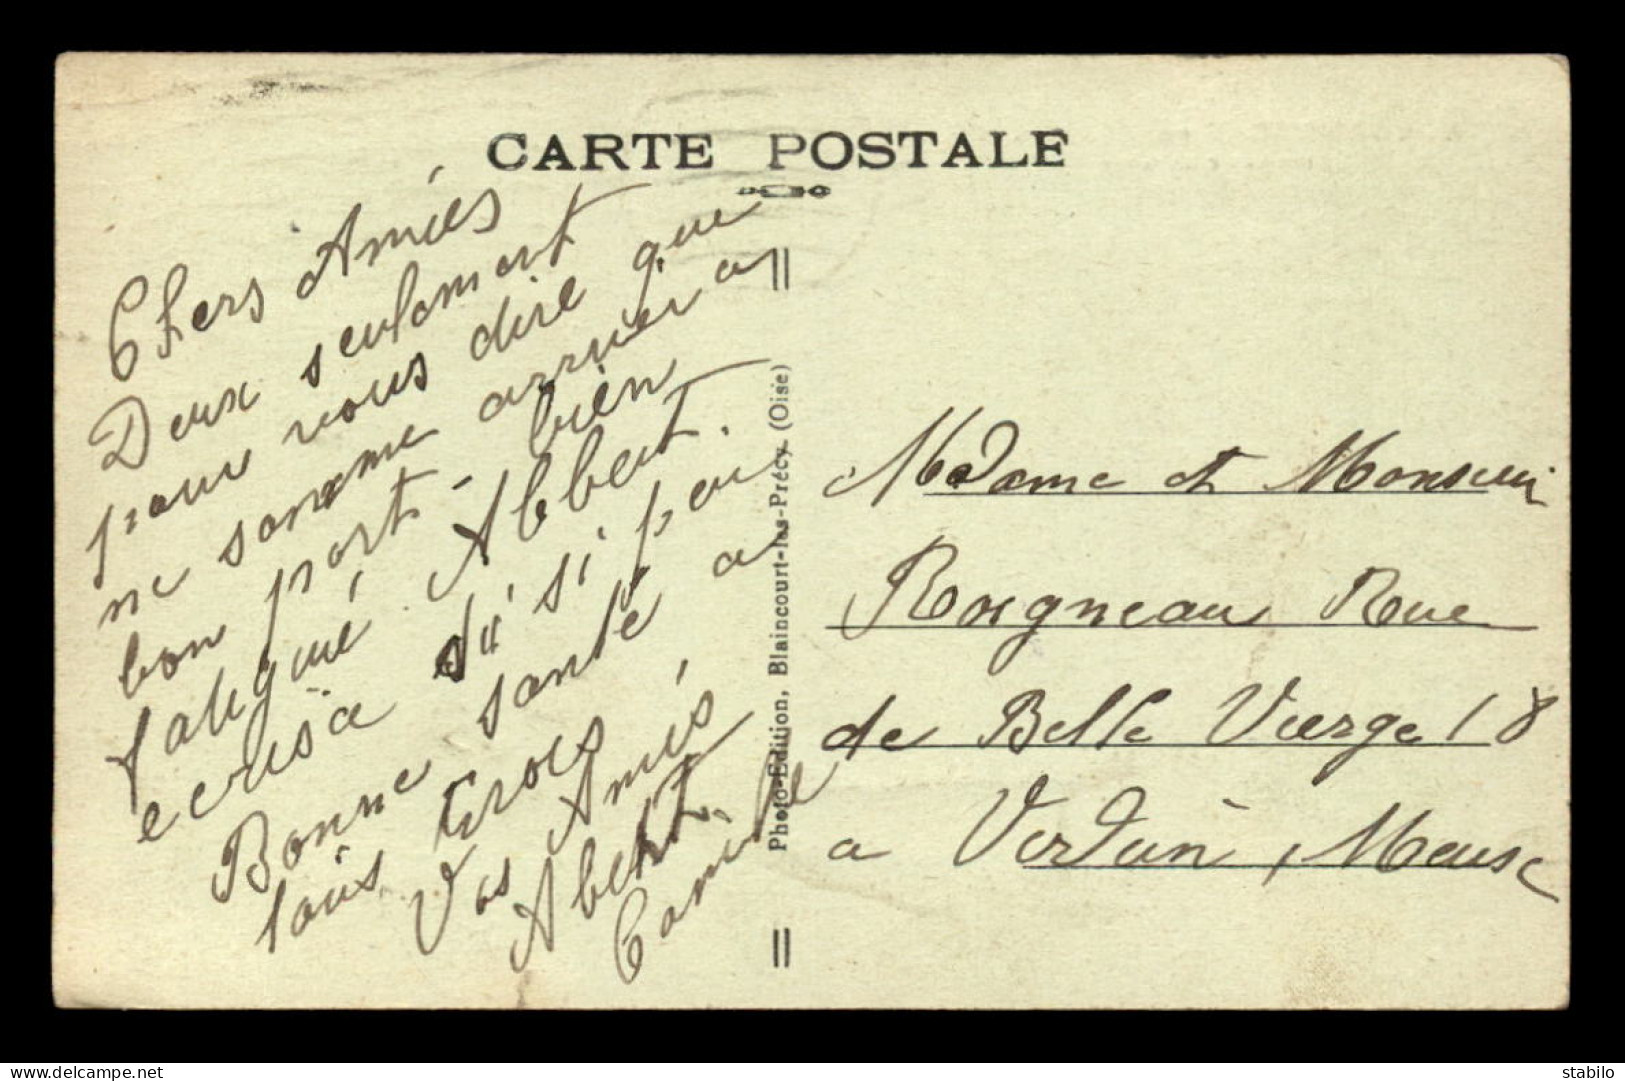 CARTE POSTALE
Chers Amies
Deux seulement
pour vous dire que
ne somme arrivier a
bon port. bien
fatigué. Albert.
ecrisa d'ii si peu
Bonne santé a
tous trois
Vos Amis
Albert
Camille
Photo-Edition, Blaincourt-les-Précy (Oise)
Madame et Monsieur
Roigneau Rue
de Belle Vierge 18
a Verdun, Meuse
delcampe.net
stabilo